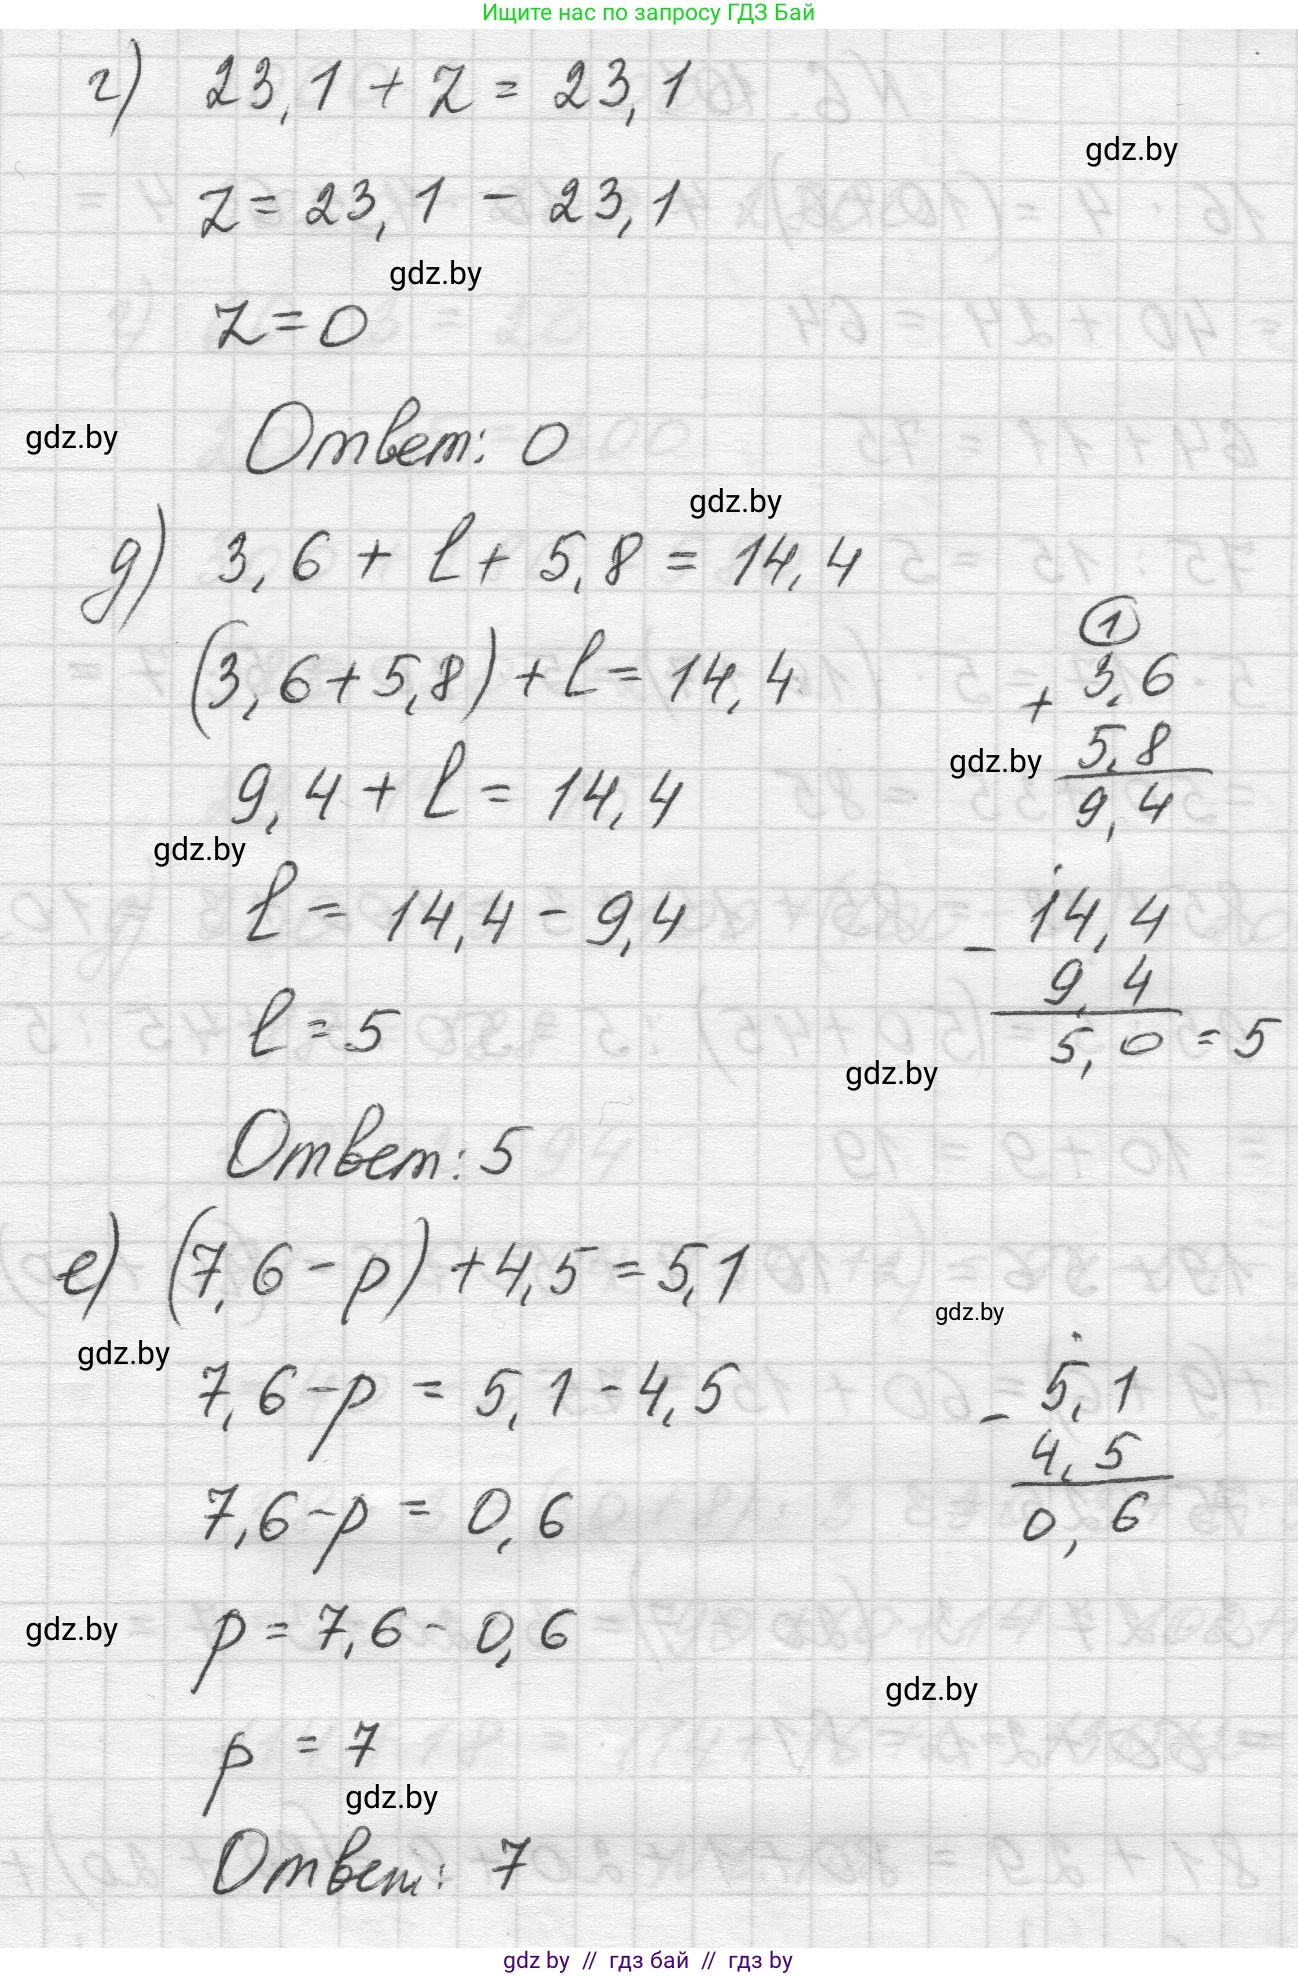 Ищите нас по запросу ГДЗ Бай
г) 23,1 + z = 23,1
gdz.by
z = 23,1 - 23,1
gdz.by
z = 0
gdz.by
Ответ: 0
gdz.by
д) 3,6 + l + 5,8 = 14,4
(3,6 + 5,8) + l = 14,4
1
+ 3,6
5,8
9,4
gdz.by
9,4 + l = 14,4
gdz.by
l = 14,4 - 9,4
- 14,4
9,4
5,0 = 5
l = 5
gdz.by
Ответ: 5
е) (7,6 - p) + 4,5 = 5,1
gdz.by
gdz.by
7,6 - p = 5,1 - 4,5
- 5,1
4,5
0,6
7,6 - p = 0,6
gdz.by
p = 7,6 - 0,6
gdz.by
p = 7
gdz.by
Ответ: 7
gdz by // гдз бай // гдз by